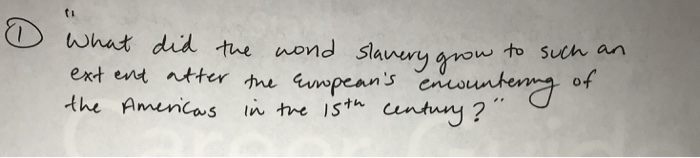 ① "What did the wond slavery grow to such an
extent atter the European's encountering of
the Americas in the 15th century?"